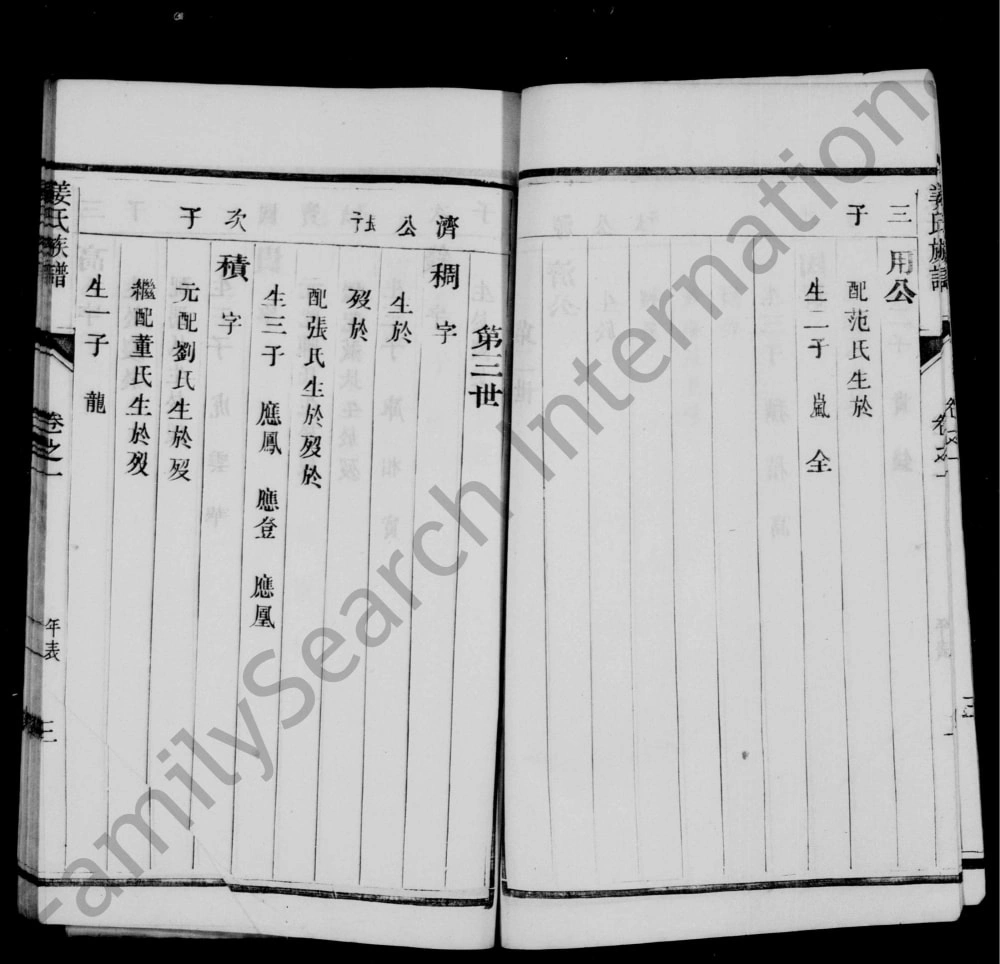 姜氏族譜
卷之一
三子
用公
配范氏生於
生二子 嵐 全
第三世
濟公長子
稠 字
生於
歿於
配張氏生於歿於
生三子 應鳳 應登 應凰
次子
積 字
元配劉氏生於歿
繼配董氏生於歿
生子 龍
姜氏族譜
卷之一
年表
三
FamilySearch International